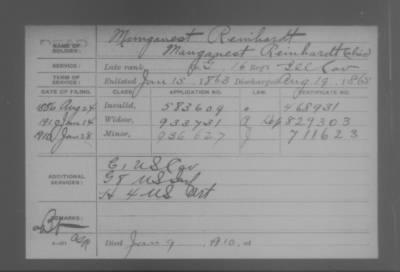 NAME OF SOLDIER: Manganest Reinhardt
Manganest Reinhardt (alias)
SERVICE: Late rank, Reg't Ill Cav
TERM OF SERVICE: Enlisted Jan 15 1863 Discharged Aug 19, 1865
DATE OF FILING. CLASS. APPLICATION NO. LAW. CERTIFICATE NO.
Aug 24 Invalid, 583609 468931
Jan 14 Widow, 933731 829303
1910 Jan 28 Minor, 936627 711623
ADDITIONAL SERVICES: E, 1 US Cav
G 8 US Inf
H 4 US Art
REMARKS:
Died Jan 9, 1910, at